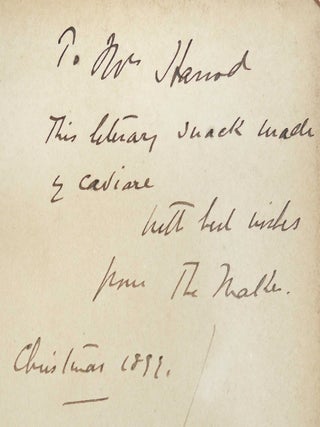 To Mrs Harrod
This literary snack made
of caviare
with best wishes
from The Maker.
Christmas 189